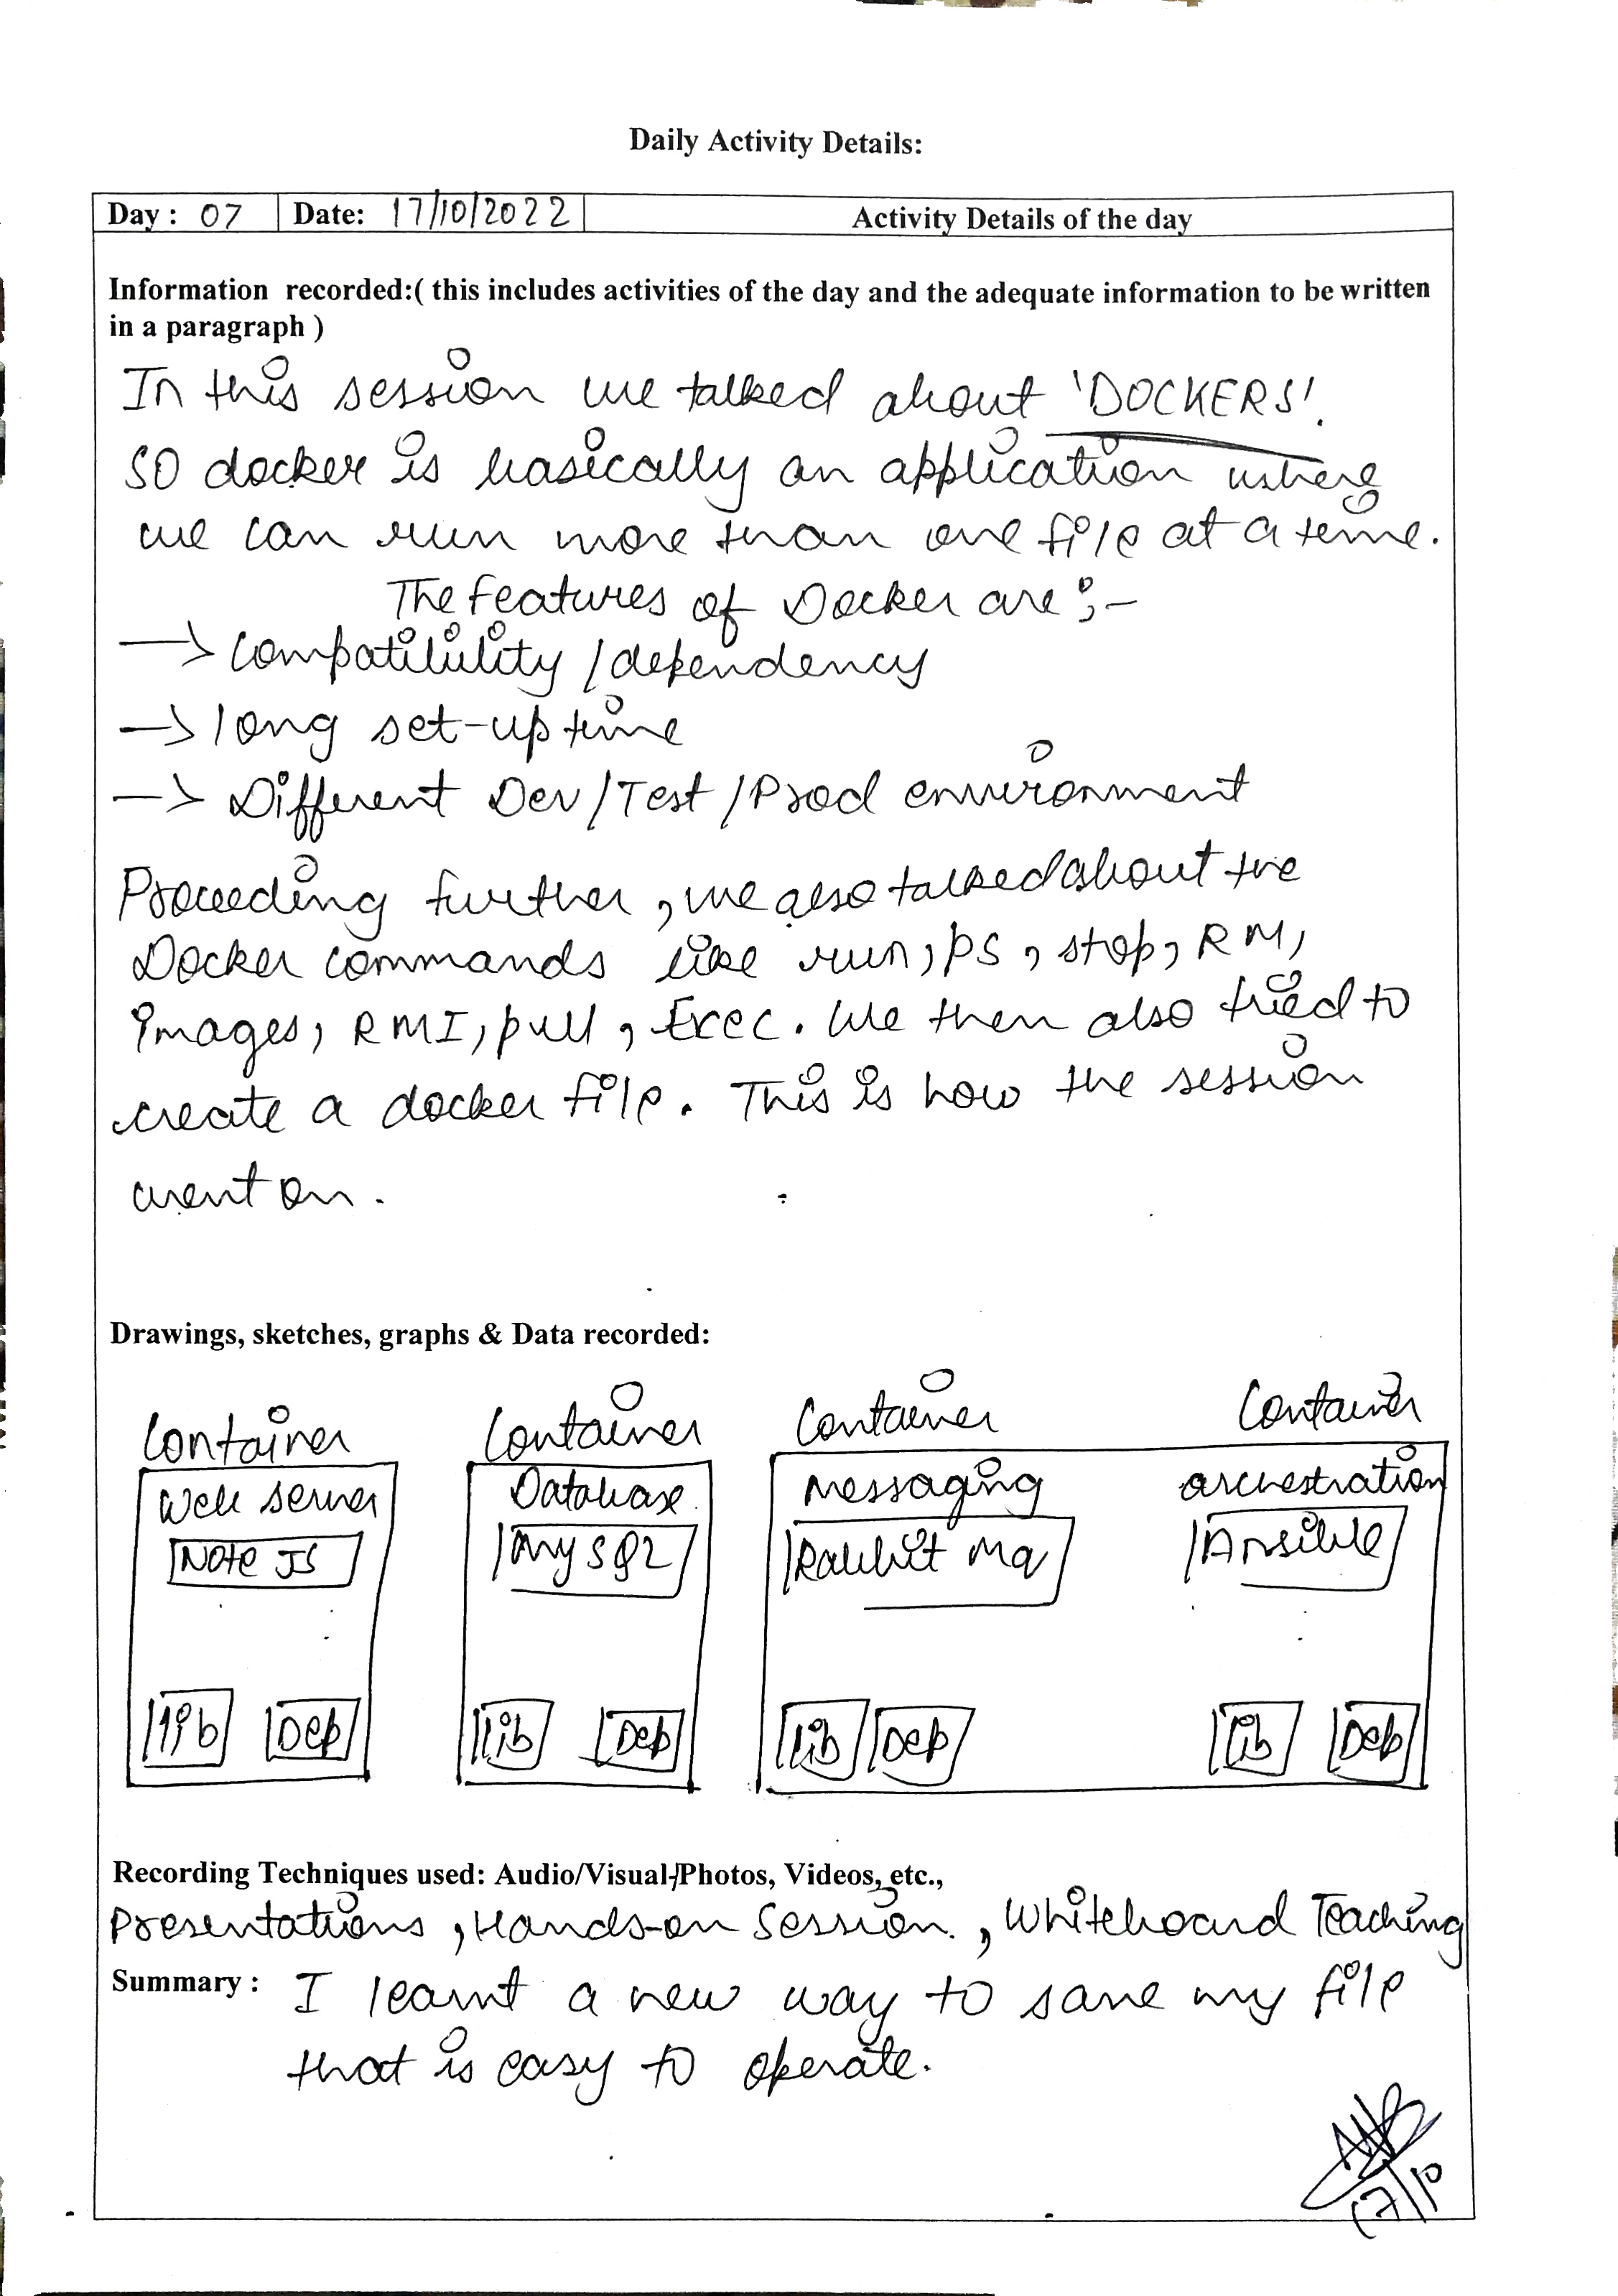 Daily Activity Details:
Day : 07 Date: 17/10/2022 Activity Details of the day
Information recorded:( this includes activities of the day and the adequate information to be written
in a paragraph )
In this session we talked about 'DOCKERS'.
SO docker is basically an application where
we can run more than one file at a time.
The Features of Docker are :-
→ Compatibility / dependency
→ long set-up time
→ Different Dev/Test/Prod environment
Proceeding further, we also talked about the
Docker commands like run, PS, stop, RM,
Images, RMI, pull, Exec. We then also tried to
create a docker file. This is how the session
went on.
Drawings, sketches, graphs & Data recorded:
Container Container Container Container
Web server Database Messaging orchestration
Note JS My SQL Rabbit Mq Ansible
lib Dep lib Dep Lib Dep Lib Dep
Recording Techniques used: Audio/Visual-/Photos, Videos, etc.,
Presentations, Hands-on Session, Whiteboard Teaching
Summary : I learnt a new way to save my file
that is easy to operate.
17/10